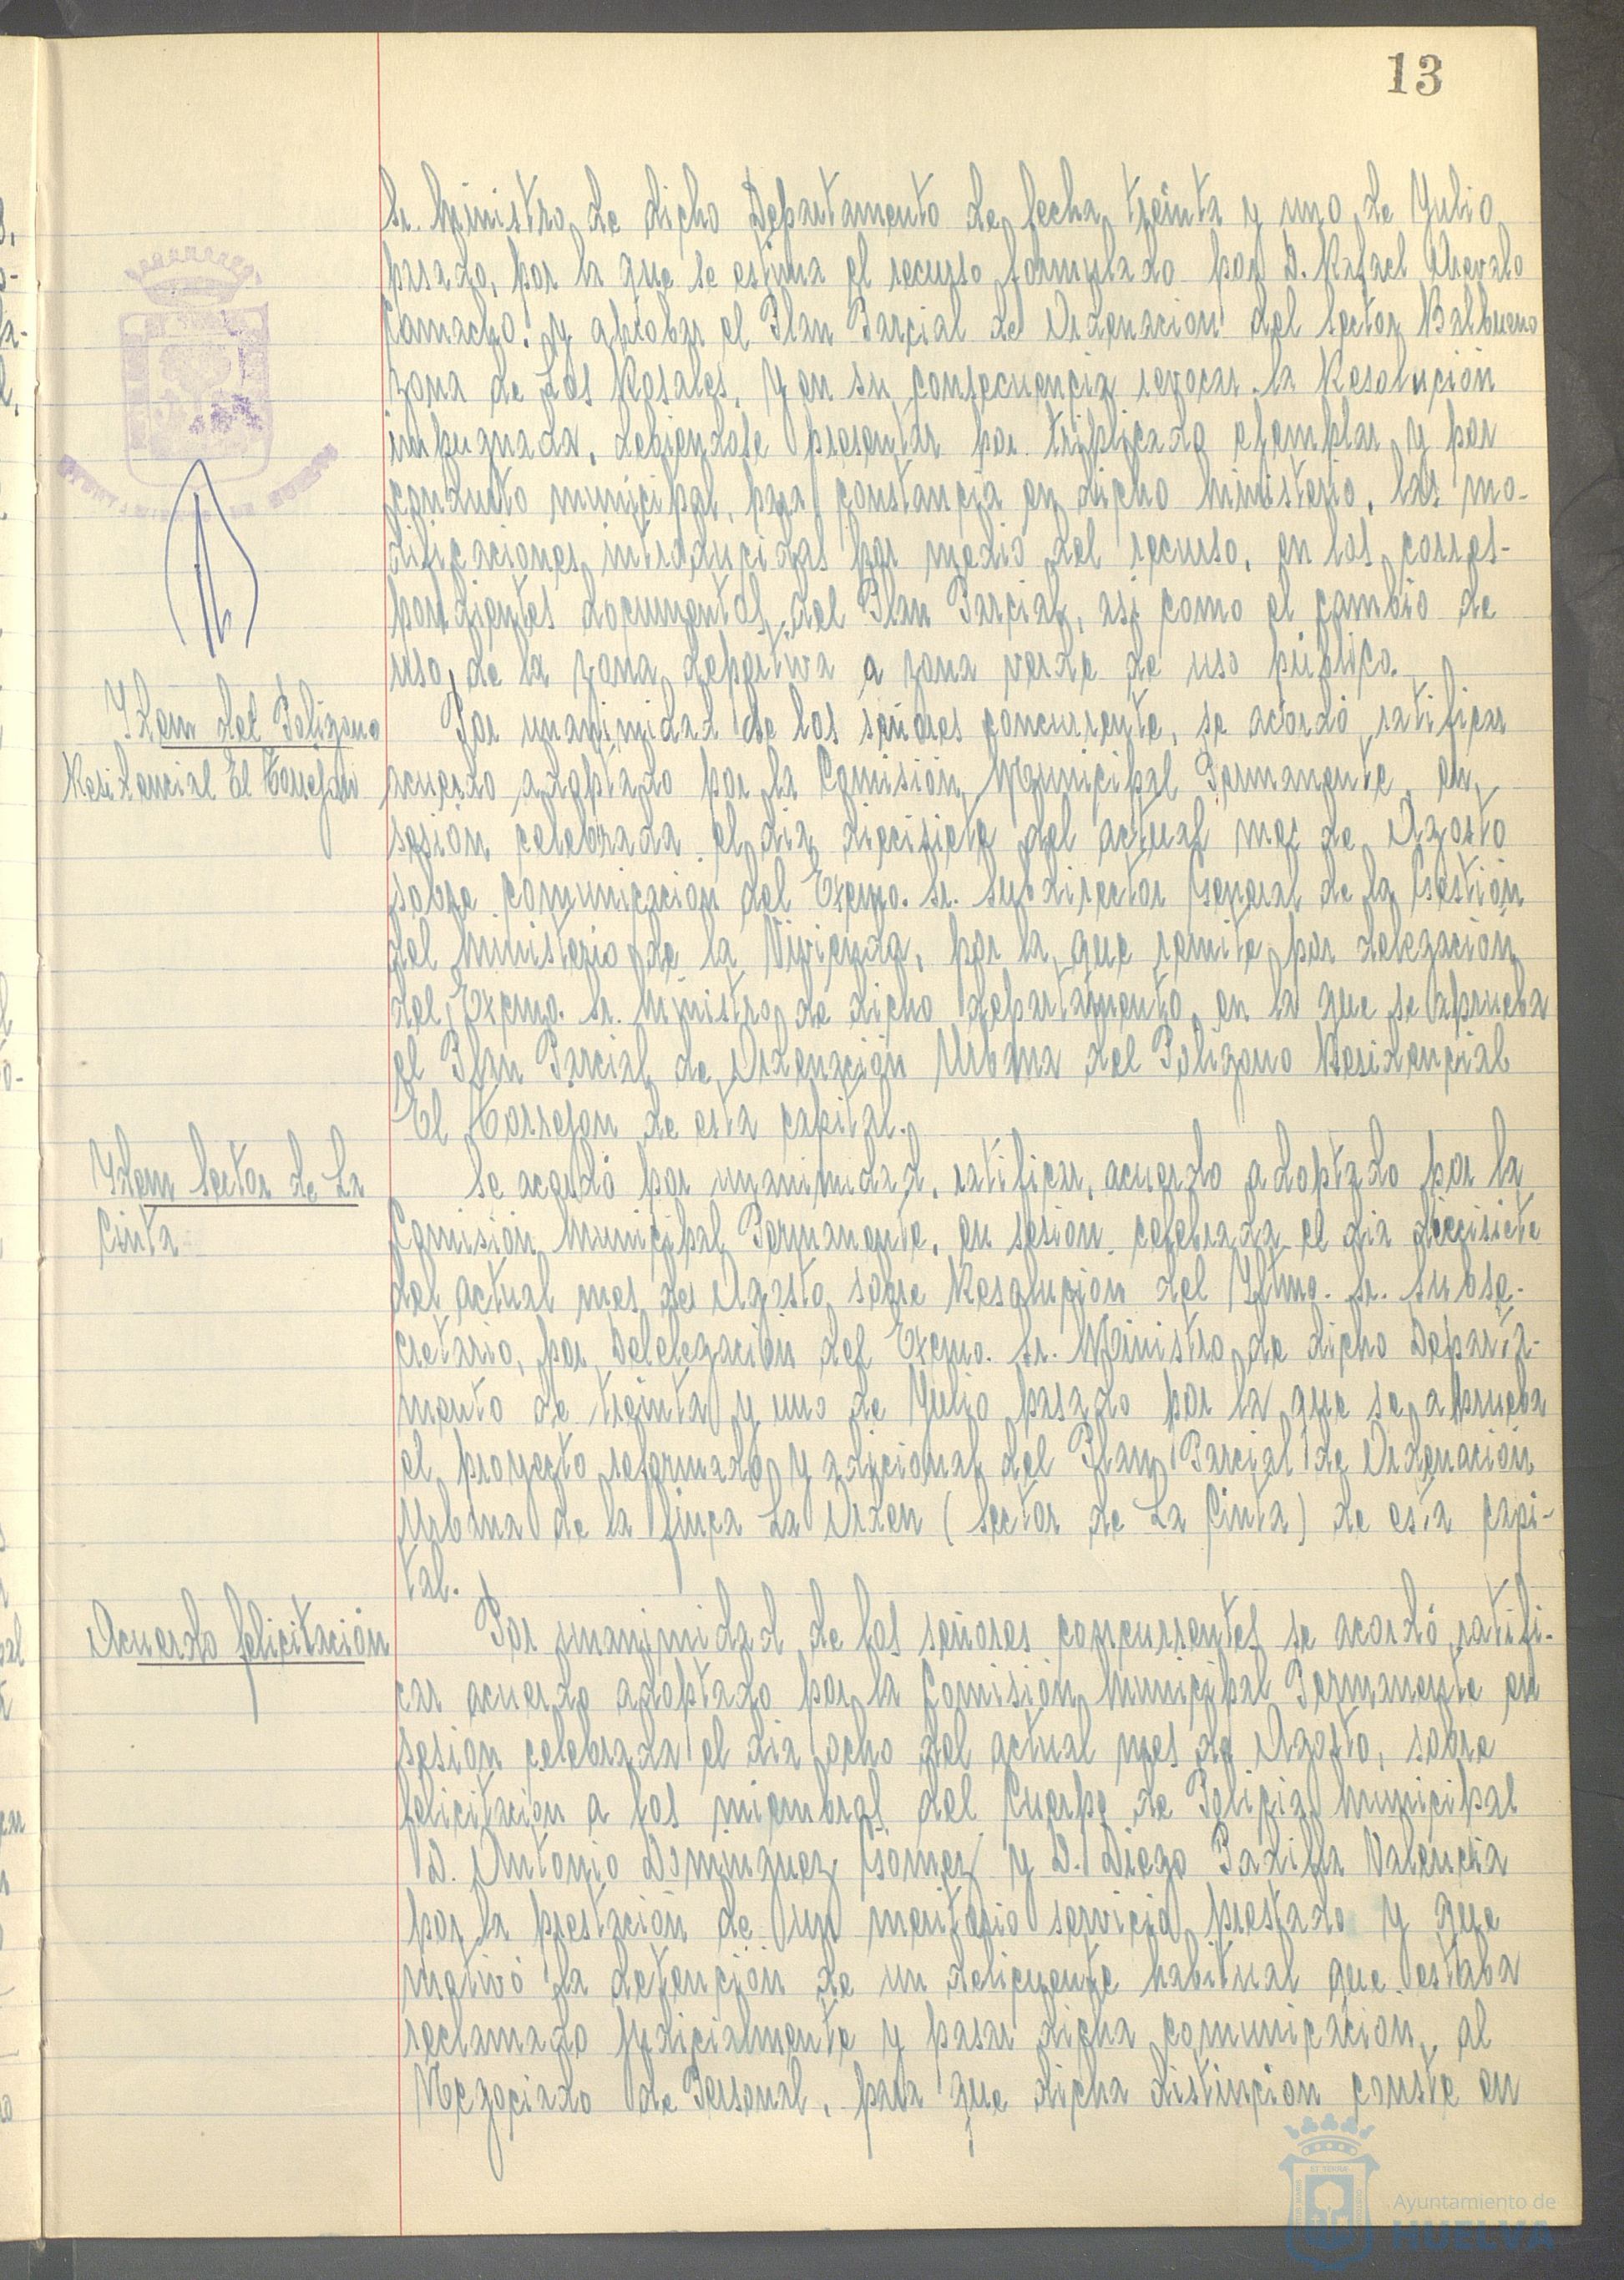 13
Sr. Ministro de dicho Departamento de fecha treinta y uno de Yulio
pasado, por la que se estima el recurso formulado por D. Rafael Arevalo
Camacho. y aprobar el Plan Parcial de Ordenacion del Sector Balbueno
zona de Los Rosales, y en su consecuencia revocar la Resolución
impugnada, debiendose presentar por triplicado ejemplar y por
conducto municipal, para constancia en dicho Ministerio, las mo-
dificaciones introducidas por medio del recurso, en los corres-
pondientes documentos del Plan Parcial, asi como el cambio de
uso, de la zona deportiva a zona verde de uso público.
Ydem del Poligono
Residencial El Torrejon
Por unanimidad de los señores concurrente, se acordó ratificar
acuerdo adoptado por la Comisión Municipal Permanente, en
sesión celebrada el dia diecisiete del actual mes de Agosto
sobre comunicación del Excmo. Sr. Subdirector General de la Gestión
del Ministerio de la Vivienda, por la que remite por delegación
del Excmo. Sr. Ministro de dicho departamento, en la que se aprueba
el Plan Parcial de Ordenación Urbana del Poligono Residencial
El Torrejon de esta capital.
Ydem Sector de La
Cinta
Se acordó por unanimidad, ratificar, acuerdo adoptado por la
Comisión Municipal Permanente, en sesion celebrada el dia diecisiete
del actual mes de Agosto sobre Resolución del Yltmo. Sr. Subse-
cretario, por Delelegación del Excmo. Sr. Ministro de dicho Departa-
mento de treinta y uno de Yulio pasado por la que se aprueba
el proyecto reformado y adicional del Plan Parcial de Ordenación
Urbana de la finca La Orden (Sector de La Cinta) de esta capi-
tal.
Acuerdo felicitación
Por unanimidad de los señores concurrentes se acordó ratifi-
car acuerdo adoptado por la Comisión Municipal Permanente en
sesion celebrada el dia ocho del actual mes de Agosto, sobre
felicitacion a los miembros del Cuerpo de Policia Municipal
D. Antonio Dominguez Gómez y D. Diego Padilla Valencia
por la prestación de un meritorio servicio prestado y que
motivó la detención de un delicuente habitual que estaba
reclamado judicialmente y pasar dicha comunicación, al
Negociado de Personal, para que dicha distincion conste en
Ayuntamiento de
HUELVA